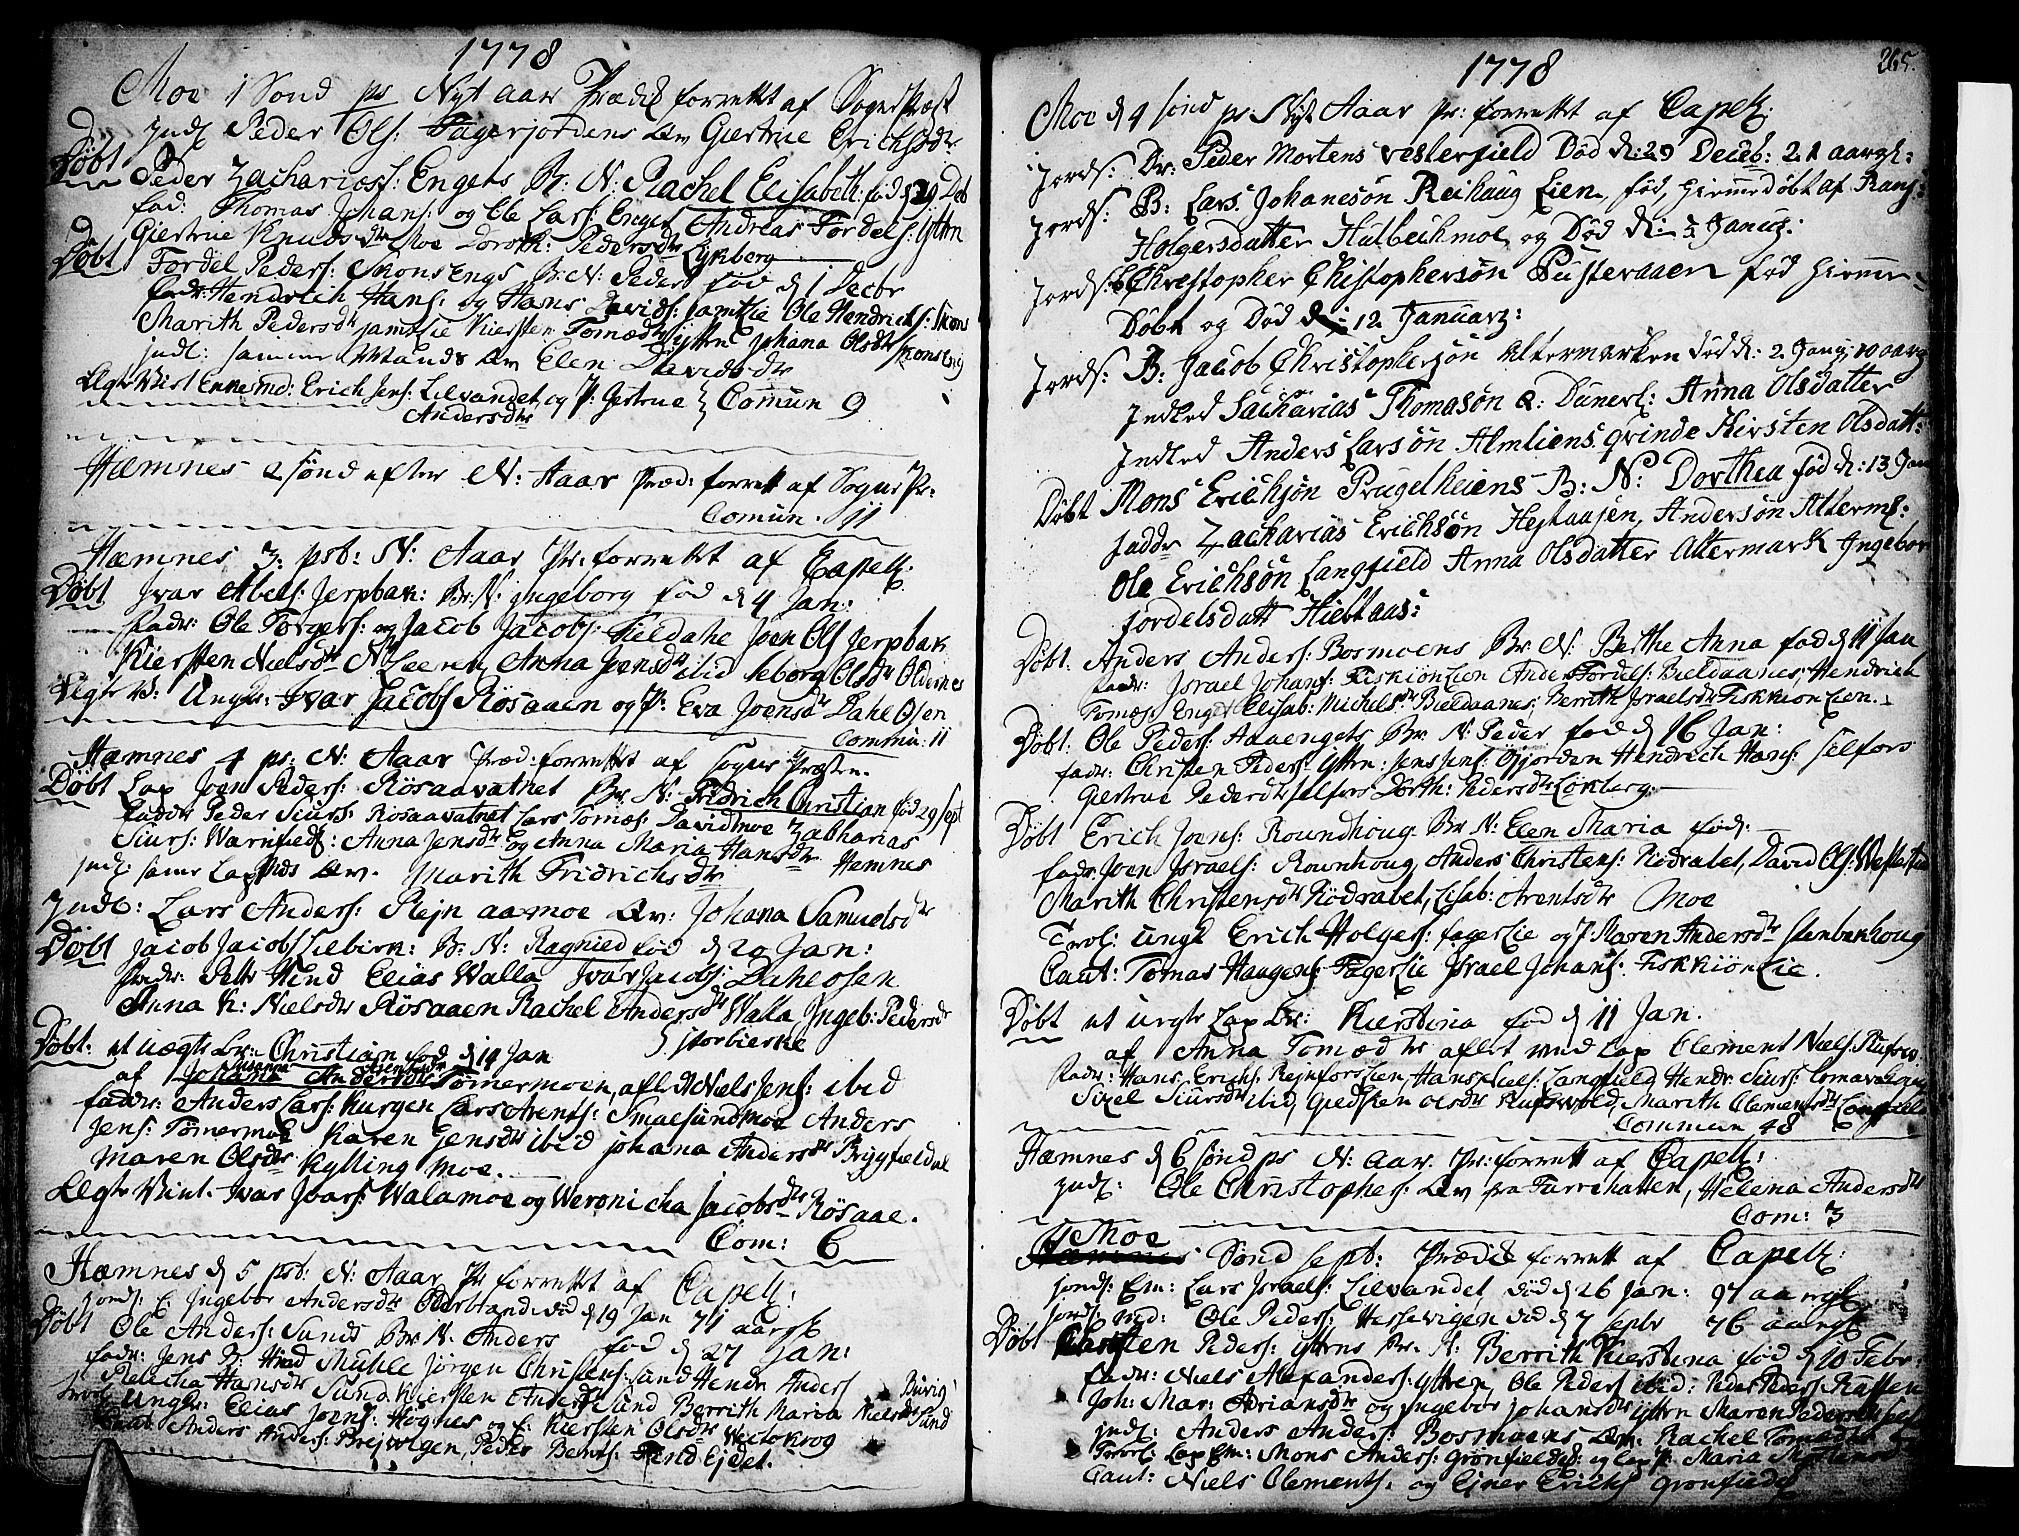 1778
Moe 1 Sond ps Nyt aar Prædik forrettet af Sogne Præst
Jndl Peder Ols: Fagerjordens Qv Giertrue Erichsdr
Døbt Peder Zachariasf: Engets B: N: Rachel Elisabeth fød d 29 Deb
fad: Thomas Johans: og Ole Lars: Enget Andreas Tordels: Ytten
Giertrue Knudsdr Moe Doroth: Pedersdr Lykberg
Døbt Tordel Peders: Skons Engs B: N: Peder fød d 1 Decbr
fadr: Hendrich Hans: og Hans Davids: samtlie Ole Hendrichs: Skons
Marith Pedersdr samtlie Kiersten Tomædr Ytten Johana Olsdr Skonseng
jndl: samme Mands Qv Elen Davidsdr
Ægte Viet Enkemd: Erich Jens: Lilvandet og P: Gertrue Comun 9
Andersdr
Hæmnes 2 sønd efter N: Aar Præd: forrett af Sogne Pr:
Comun. 11
Hæmnes 3 psb: N: Aar Pr: forrettet af Capell:
Døbt Jvar Abels: Jerpbak: B: N: Jngeborg fød d 4 Jan:
fadr: Ole Torgers: og Jacob Jacobs: Fieldahe Joen Ols Jerpbak
Kiersten Nielsdr N Leeren Anna Joensdr ibid Seborg Olsdr Oldernes
Ægte V: Ungkr: Jvar Jacobs Røsaaen og P: Eva Joensdr Dahl Osen
Commun: 11
Hæmnes 4 ps: N: Aar Præd: forrettet af Sogne Præsten.
Døbt Lap Joen Peders: Rösaavatnet B: N: Fridrich Christian fød 29 Sept
faddr Peder Siurs: Rosaavatnet Lars Tomæs: Davidmoe Zacharias
Siurs: Warnfield: Anna Jensdr Eg Anna Maria Hansdr Hemnes
jndl samme Lappids Qv. Marith Fridrichsdr
Jndl: Lars Anders: Plejn aamoe Qv: Johana Samuelsdr
Døbt Jacob Jacobs Lilbirk: B: N: Ragnild fød d 20 Jan:
fadr: Pette Hind Elias Walla Jvar Jacobs: Dahlosen
Anna K: Nielsdr Røsaaen Rachel Andersdr Walla Jngeb: Pedersdr
Storbierke
Døbt et uægte Br: Christian fød d 14 Jan
af Johana Andersdr Tømermoen, aflet Niels Jens: ibid
faddr: Anders Lars: Kurgen Lars Arents: Smalsundmoe Anders
Jens: Tømermoe Karen Jensdr ibid Johana Andersdr Bryggfieldal
Maren Olsdr Kylling moe.
Ægte Viet. Jvar Jvars: Walamoe og Weronicha Jacobsdr Røsaae.
Com: 6
Hæmnes d 5 psb: N: Aar Pr forrettet af Capell:
jords: E: Jngebor Andersdr Oterstrand død d 19 Jan 74 aargl
Døbt Ole Anders: Sunds B: N: Anders fød d 27 Jan:
fadr: Jens B: Hind Mühle Jörgen Christens: Sund Hendr Anders
Relicha Hansdr Sund Kiersten Andersdr Sund Berrith Maria Nielsdr Sund
Trol: Ungkr: Elias Joens: Hognes og P: Kiersten Olsdr Westokrog
Caut Anders Anders: Brejvigen, Peder Bents: Find Ejdet.
1778
265.
Moe d 4 sønd ps Nyt Aar Pr: forrettet af Capell:
Jords: Dr: Peder Mortens Vesterfield Død d: 29 Deceb: 21 aargl:
Jords: B: Lars Johanesön Reihaug Lien, fød, hiemme døbt af Rans:
Holgersdatter Hulbechmoe, og Død d: 3 Januz:
Jords: B Christopher Christophersön Pusteraaen fød hiemme-
Døbt og Død d: 12 Januarz:
Jords: B: Jacob Christophersön Altermarken død d: 2 Janz: 10 aarg
Indled Sacharias Thomasön Q: Dünerl: Anna Olsdatter
Indled Anders Larsön Almliens qvinde Kirsten Olsdatt:
Døbt Mons Erichsön Prügelheiens B: N: Dorthea fød d: 13 Jan
faddr Zacharias Erichsön Hejhaugen, Andersön Alterm:
Ole Erichsön Langfield Anna Olsdatter Altermark Jngebor
Tordelsdatt Hielhaus:
Døbt. Anders Anders: Bosmoens B: N: Berthe Anna fød d 11 Jan
fadr: Jsrael Johans: Fiskiön Lien Ande Tordels: Bieldaanes: Hendrich
Tomæs: Enget Elisab: Michelsdr Bieldaanes, Berrith Jsraelsdr Fiskkiön Lien.
Døbt. Ole Peders: Aaengets B: N: Peder fød d 16 Jan:
fadr: Christen Peders: Ytten: Jens Jens: Gjorden Hendrich Hans: Selfors
Giertrue Pedersdr Selfors Doroth: Pedersdr Lönberg.
Døbt Erich Joens: Roundhoug B: N: Elen Maria fød:
fadr Joen Jsraels: Rounhoug, Anders Christens: Rödrabet, David Ols: Westerfield
Marith Christensdr Rödrabet, Elisab: Arentsdr Moe
Trol: Ungk Erich Holgers: fagerlie og P: Maren Andersdr Stenbenhoug
Caut: Tomas Haagens: Fagerlie Jsrael Johans: Fiskkiönlie.
Døbt et uægte Lap Br: Kierstina fød d 11 Jan.
af Anna Tomædr aflet med Lap Clement Niels: Rufsv
fadr: Hans Erichs: Rejnforslien, Hans Niels: Langfield Hendr: Siurs:
Sixel Siursdr ibid, Giedsken Olsdr Rufswold, Marith Clementsdr Langfield
Commun 48
Hæmnes d 6 sønd ps N: Aar. Pr: forrett af Capell:
Jndl: Ole Christophers: Qv fra Furrehatten, Helena Andersdr
Com: 3
Moe
Sond Sept: Prædik forrett af Capell:
jords: Em: Lars Jsraels: Lilvandet død d 26 Jan: 97 aargl
jords: md: Ole Peders: Hessevigen død d 7 Febr 76 aargl
Døbt Christen Peders: Yttens B: N: Berrith Kierstina fød d 10 Febr:
fadr: Niels Alexanders: Ytten, Ole Peders ibid: Peder Peders
Joh: Mar: Adriansdr og Jngebor Johansdr Ytten Maren Pedersdr
jndl: Anders Anders: Bosmoens Qv: Rachel Tomædr
Trol: Lap Em: Mons Anders: Grønfieldet: og Lap P: Maria Mortensd
Caut: Niels Clements: og Ejner Erichs Grønfieldet